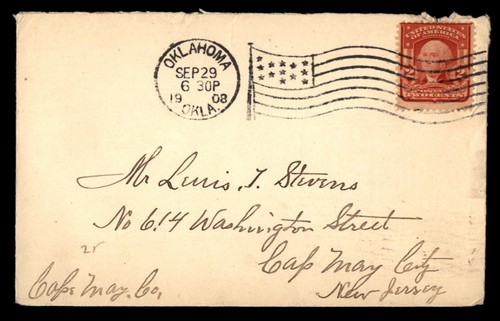 OKLAHOMA
SEP 29
6 30P
1908
OKLA.
UNITED STATES OF AMERICA
TWO CENTS
Mr Lewis. T. Stevens
No 614 Washington Street
Cape May City
New Jersey
Cape May. Co,